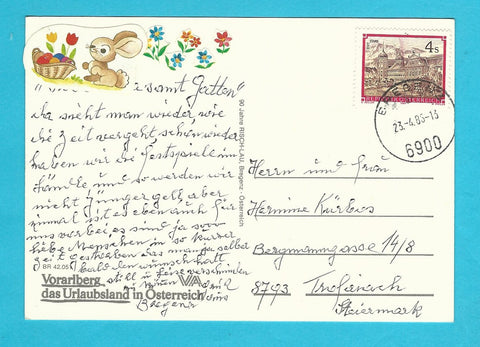 samt Gatten"
da sieht man wieder wie
die Zeit vergeht schon wieder
haben wir die Festspiele im
und so werden wir
nicht Jünger gell, aber
einmal ist es eben auch für
uns vorbei, es sind ja so
liebe Menschen in so kurzer
Zeit gestorben das man ja selbst
bald den wunsch hat
still u leise
Bregenz
BR 4205
Vorarlberg VA
das Urlaubsland in Österreich
90 Jahre RISCH-LAU, Bregenz - Österreich
4 S
REPUBLIK ÖSTERREICH
23.-4.86-13
6900
Herrn und Frau
Hermine Kürbos
Bergmanngasse 14/8
8793 Trofaiach
Steiermark